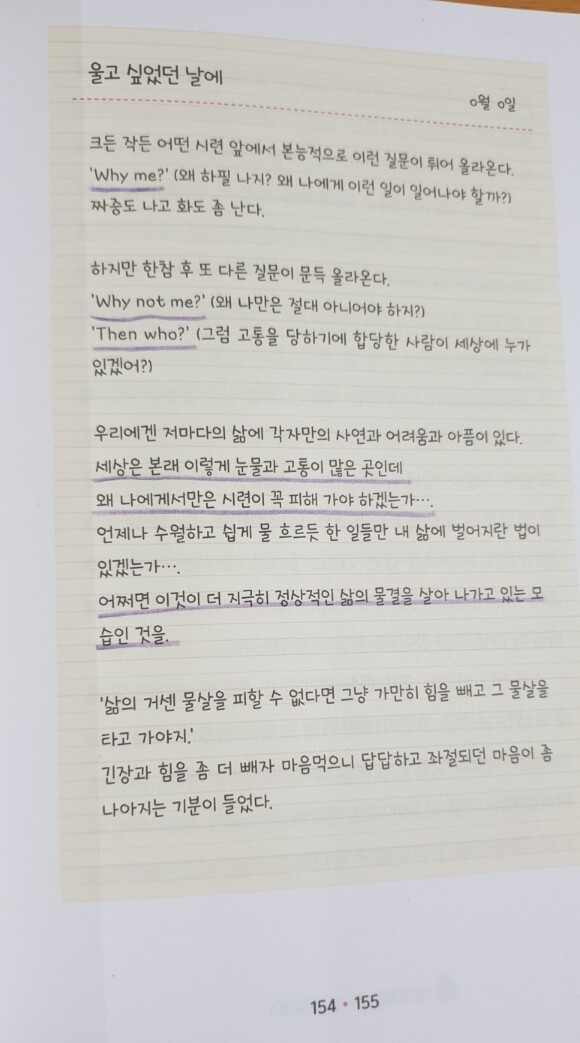 울고 싶었던 날에
o월 o일
크든 작든 어떤 시련 앞에서 본능적으로 이런 질문이 튀어 올라온다.
'Why me?' (왜 하필 나지? 왜 나에게 이런 일이 일어나야 할까?)
짜증도 나고 화도 좀 난다.
하지만 한참 후 또 다른 질문이 문득 올라온다.
'Why not me?' (왜 나만은 절대 아니어야 하지?)
'Then who?' (그럼 고통을 당하기에 합당한 사람이 세상에 누가
있겠어?)
우리에겐 저마다의 삶에 각자만의 사연과 어려움과 아픔이 있다.
세상은 본래 이렇게 눈물과 고통이 많은 곳인데
왜 나에게서만은 시련이 꼭 피해 가야 하겠는가….
언제나 수월하고 쉽게 물 흐르듯 한 일들만 내 삶에 벌어지란 법이
있겠는가….
어쩌면 이것이 더 지극히 정상적인 삶의 물결을 살아 나가고 있는 모
습인 것을.
'삶의 거센 물살을 피할 수 없다면 그냥 가만히 힘을 빼고 그 물살을
타고 가야지.'
긴장과 힘을 좀 더 빼자 마음먹으니 답답하고 좌절되던 마음이 좀
나아지는 기분이 들었다.
154 • 155